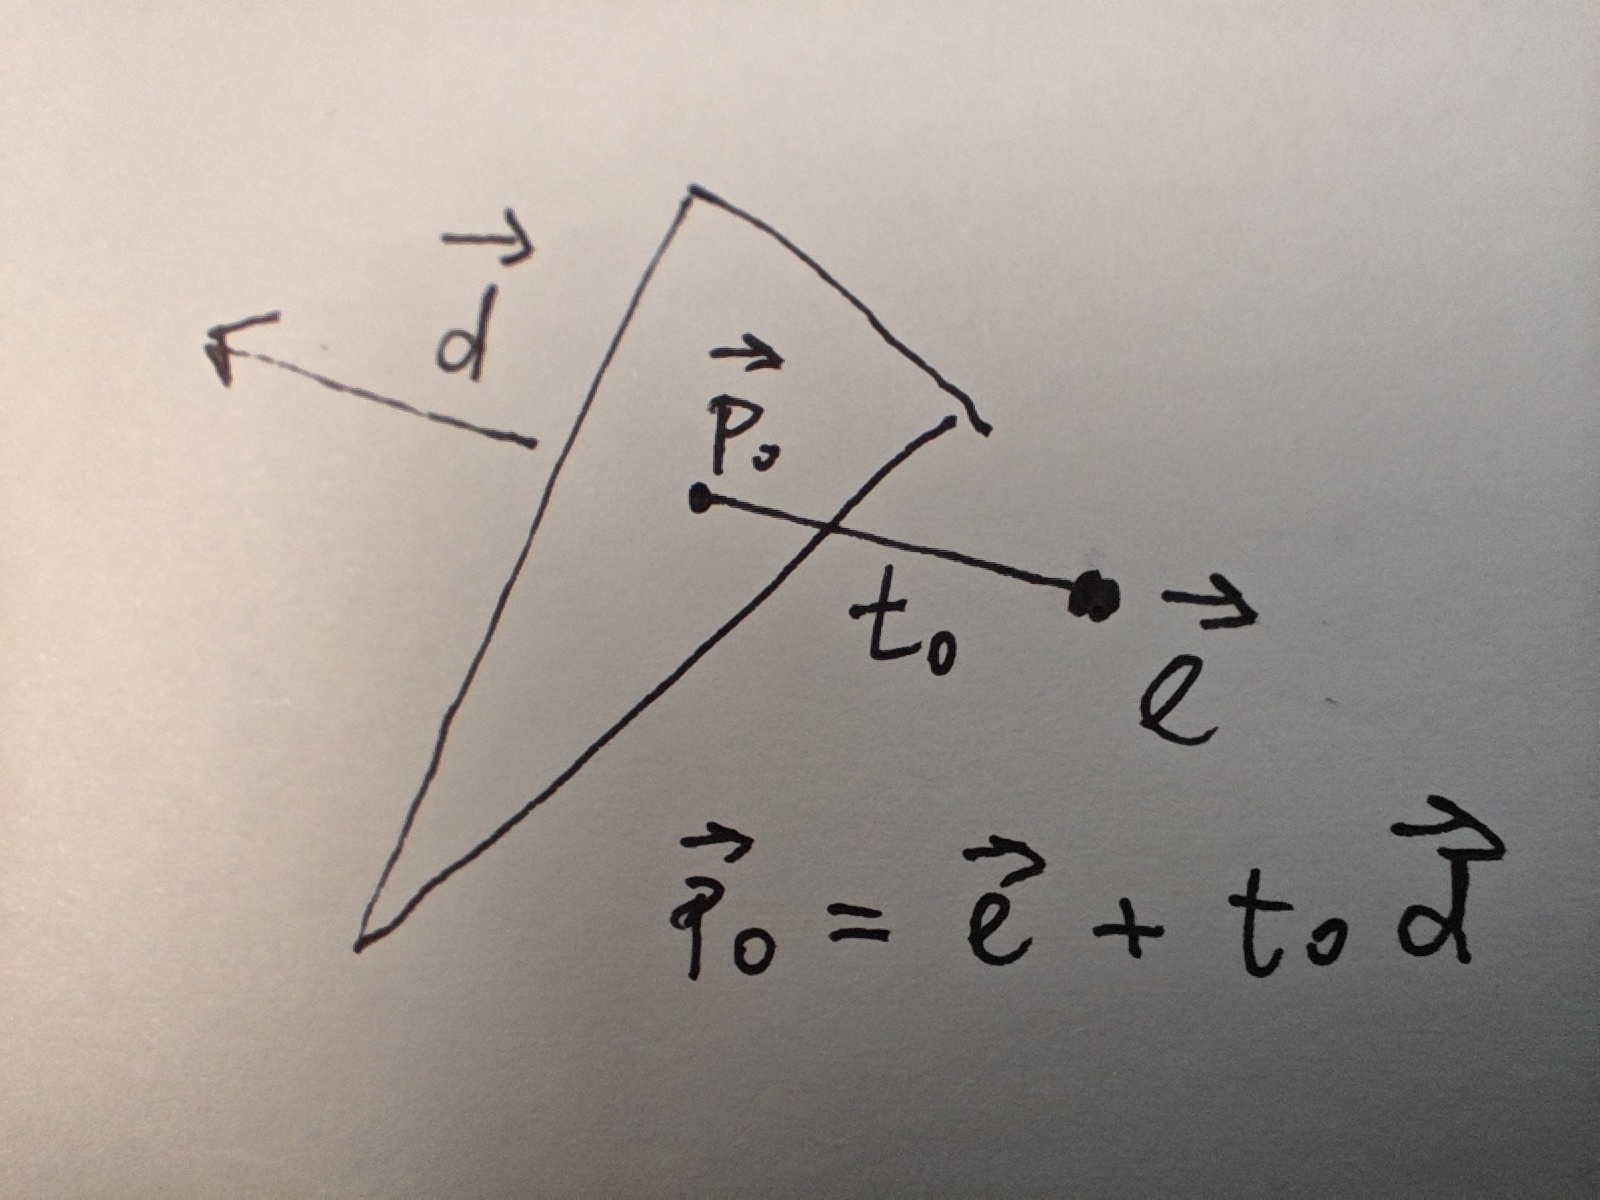 d⃗
p⃗₀
t₀
e⃗
p⃗₀ = e⃗ + t₀ d⃗